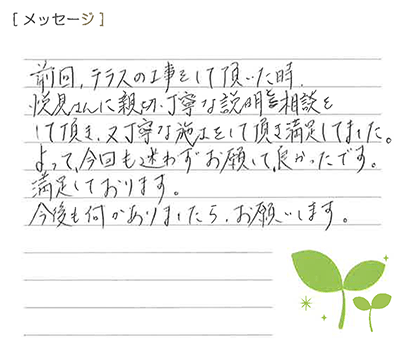 [メッセージ]
前回、テラスの工事をして頂いた時、
悦見さんに親切、丁寧な説明と相談を
して頂き、又丁寧な施工をして頂き満足してました。
よって、今回も迷わずお願して、良かったです。
満足しております。
今後も何かありましたら、お願いします。